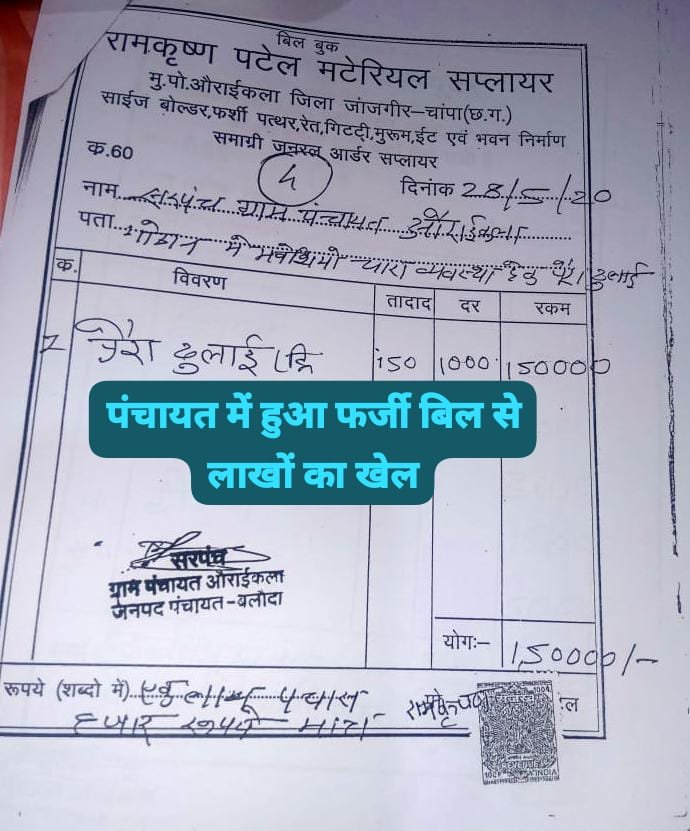 बिल बुक
रामकृष्ण पटेल मटेरियल सप्लायर
मु.पो.औराईकला जिला जांजगीर–चांपा(छ.ग.)
साईज बोल्डर,फर्शी पत्थर,रेत,गिटटी,मुरूम,ईट एवं भवन निर्माण
समाग्री जनरल आर्डर सप्लायर
क.60
4
दिनांक 28/5/20
नाम सरपंच ग्राम पंचायत औराईकला
पता गोठान मे मवेशियो चारा व्यवस्था हेतु पैरा ढुलाई
क. विवरण तादाद दर रकम
1 पैरा ढुलाई 150 1000 150000
पंचायत में हुआ फर्जी बिल से
लाखों का खेल
सरपंच
ग्राम पंचायत औराईकला
जनपद पंचायत–बलौदा
योगः– 1,50000/-
रूपये (शब्दो में) एक लाख पचास
हजार रूपये मात्र
INDIA